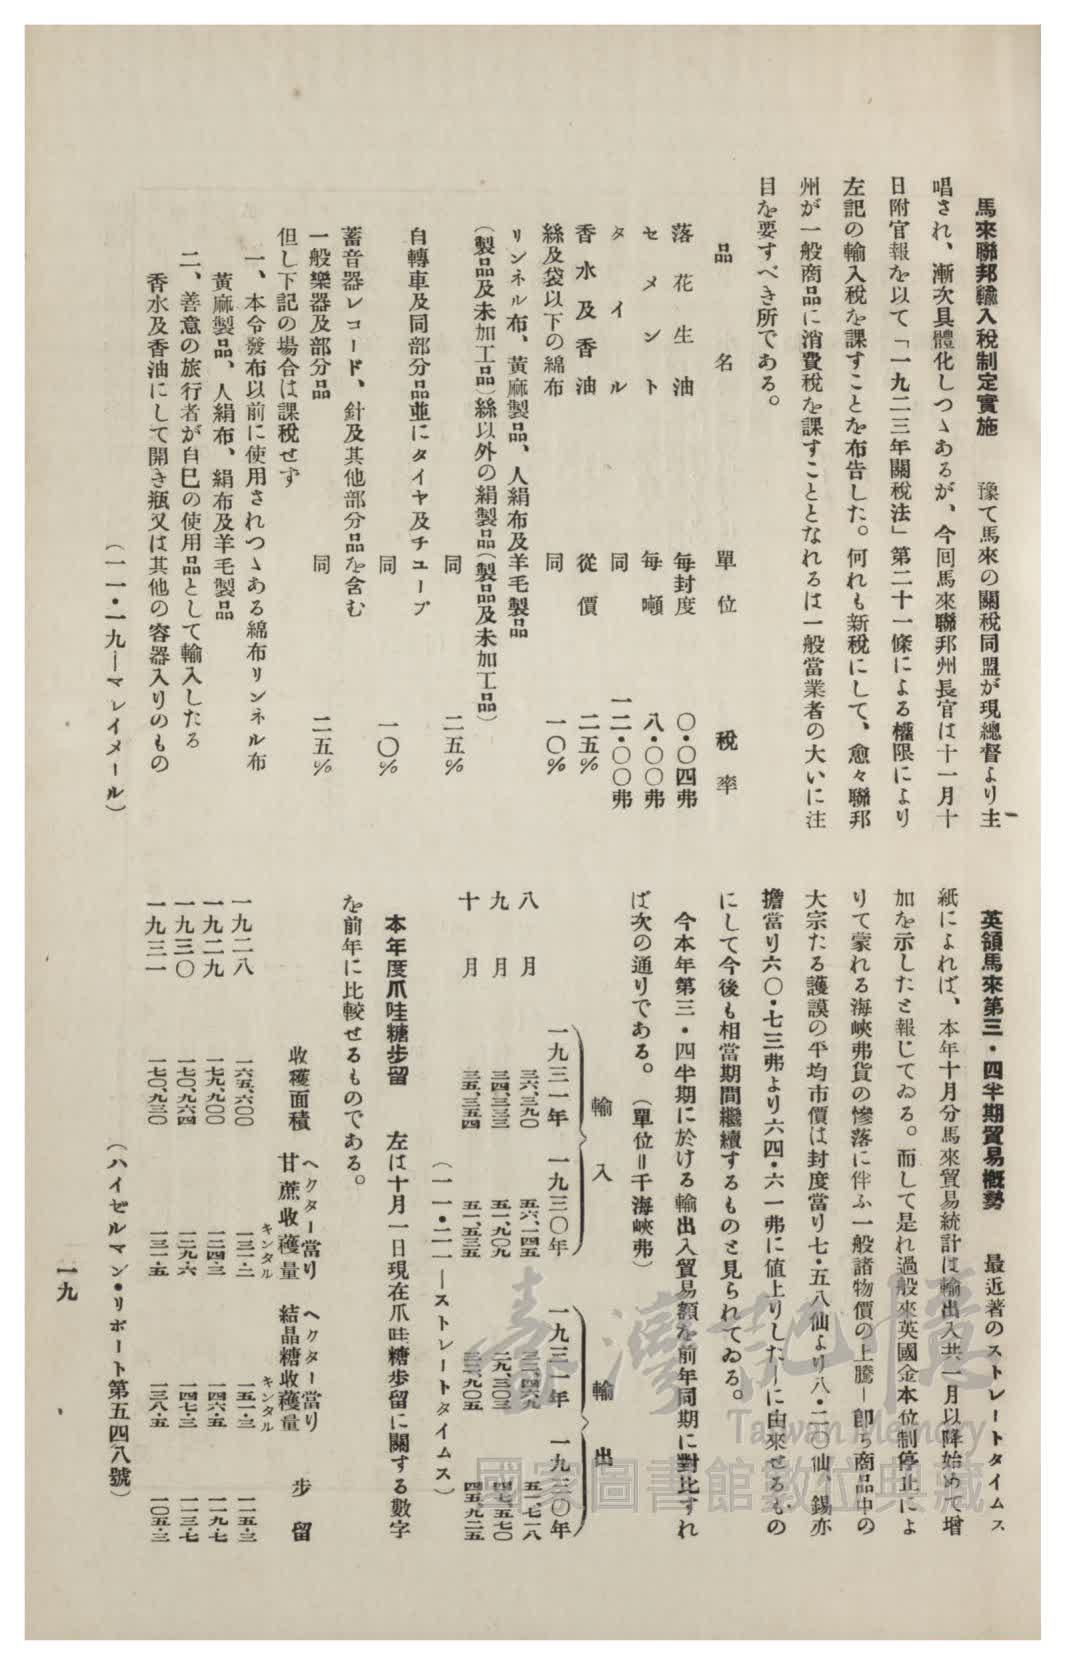 馬來聯邦輸入稅制定實施　豫て馬來の關稅同盟が現總督より主
唱され、漸次具體化しつゝあるが、今回馬來聯邦州長官は十一月十
日附官報を以て「一九二三年關稅法」第二十一條による權限により
左記の輸入稅を課すことを布告した。何れも新稅にして、愈々聯邦
州が一般商品に消費稅を課すこととなれるは一般當業者の大いに注
目を要すべき所である。
品名　單位　稅率
落花生油　每封度　〇・〇四弗
セメント　每噸　八・〇〇弗
タイル　同　一二・〇〇弗
香水及香油　從價　二五％
絲及袋以下の綿布　同　一〇％
リンネル布、黃麻製品、人絹布及羊毛製品
（製品及未加工品）絲以外の絹製品（製品及未加工品）
同　二五％
自轉車及同部分品並にタイヤ及チューブ
同　一〇％
蓄音器レコード、針及其他部分品を含む
一般樂器及部分品　同　二五％
但し下記の場合は課稅せず
一、本令發布以前に使用されつゝある綿布リンネル布
黃麻製品、人絹布、絹布及羊毛製品
二、善意の旅行者が自巳の使用品として輸入したる
香水及香油にして開き瓶又は其他の容器入りのもの
（一一・一九―マレイメール）
英領馬來第三・四半期貿易概勢　最近著のストレートタイムス
紙によれば、本年十月分馬來貿易統計は輸出入共一月以降始めて增
加を示したと報じてゐる。而して是れ過般來英國金本位制停止によ
りて蒙れる海峽弗貨の慘落に伴ふ一般諸物價の上騰―卽ち商品中の
大宗たる護謨の平均市價は封度當り七・五八仙より八・二〇仙、錫亦
擔當り六〇・七三弗より六四・六一弗に値上りした―に由來せるもの
にして今後も相當期間繼續するものと見られてゐる。
今本年第三・四半期に於ける輸出入貿易額を前年同期に對比すれ
ば次の通りである。（單位＝千海峽弗）
輸入　輸出
一九三一年　一九三〇年　一九三一年　一九三〇年
八月　三六、三九〇　五六、一四五　三三、四六九　五一、七一八
九月　三四、三三三　五一、九〇九　二九、三〇三　四七、五七〇
十月　三五、三五四　五一、五三五　三三、九〇五　四五、九二五
（一一・二一―ストレートタイムス）
本年度爪哇糖步留　左は十月一日現在爪哇糖步留に關する數字
を前年に比較せるものである。
收穫面積　ヘクター當り甘蔗收穫量　ヘクター當り結晶糖收穫量　步留
キンタル　キンタル
一九二八　一六五、六〇〇　一三一・二　一五一・三　一一五・三
一九二九　一七九、九〇〇　一三四・三　一四六・五　一一九・七
一九三〇　一七〇、九六四　一二九・六　一四七・三　一一三・七
一九三一　一七〇、九三〇　一三一・五　一三八・五　一〇五・三
（ハイゼルマン・リポート第五四八號）
一九
臺灣記憶
Taiwan Memory
國家圖書館數位典藏